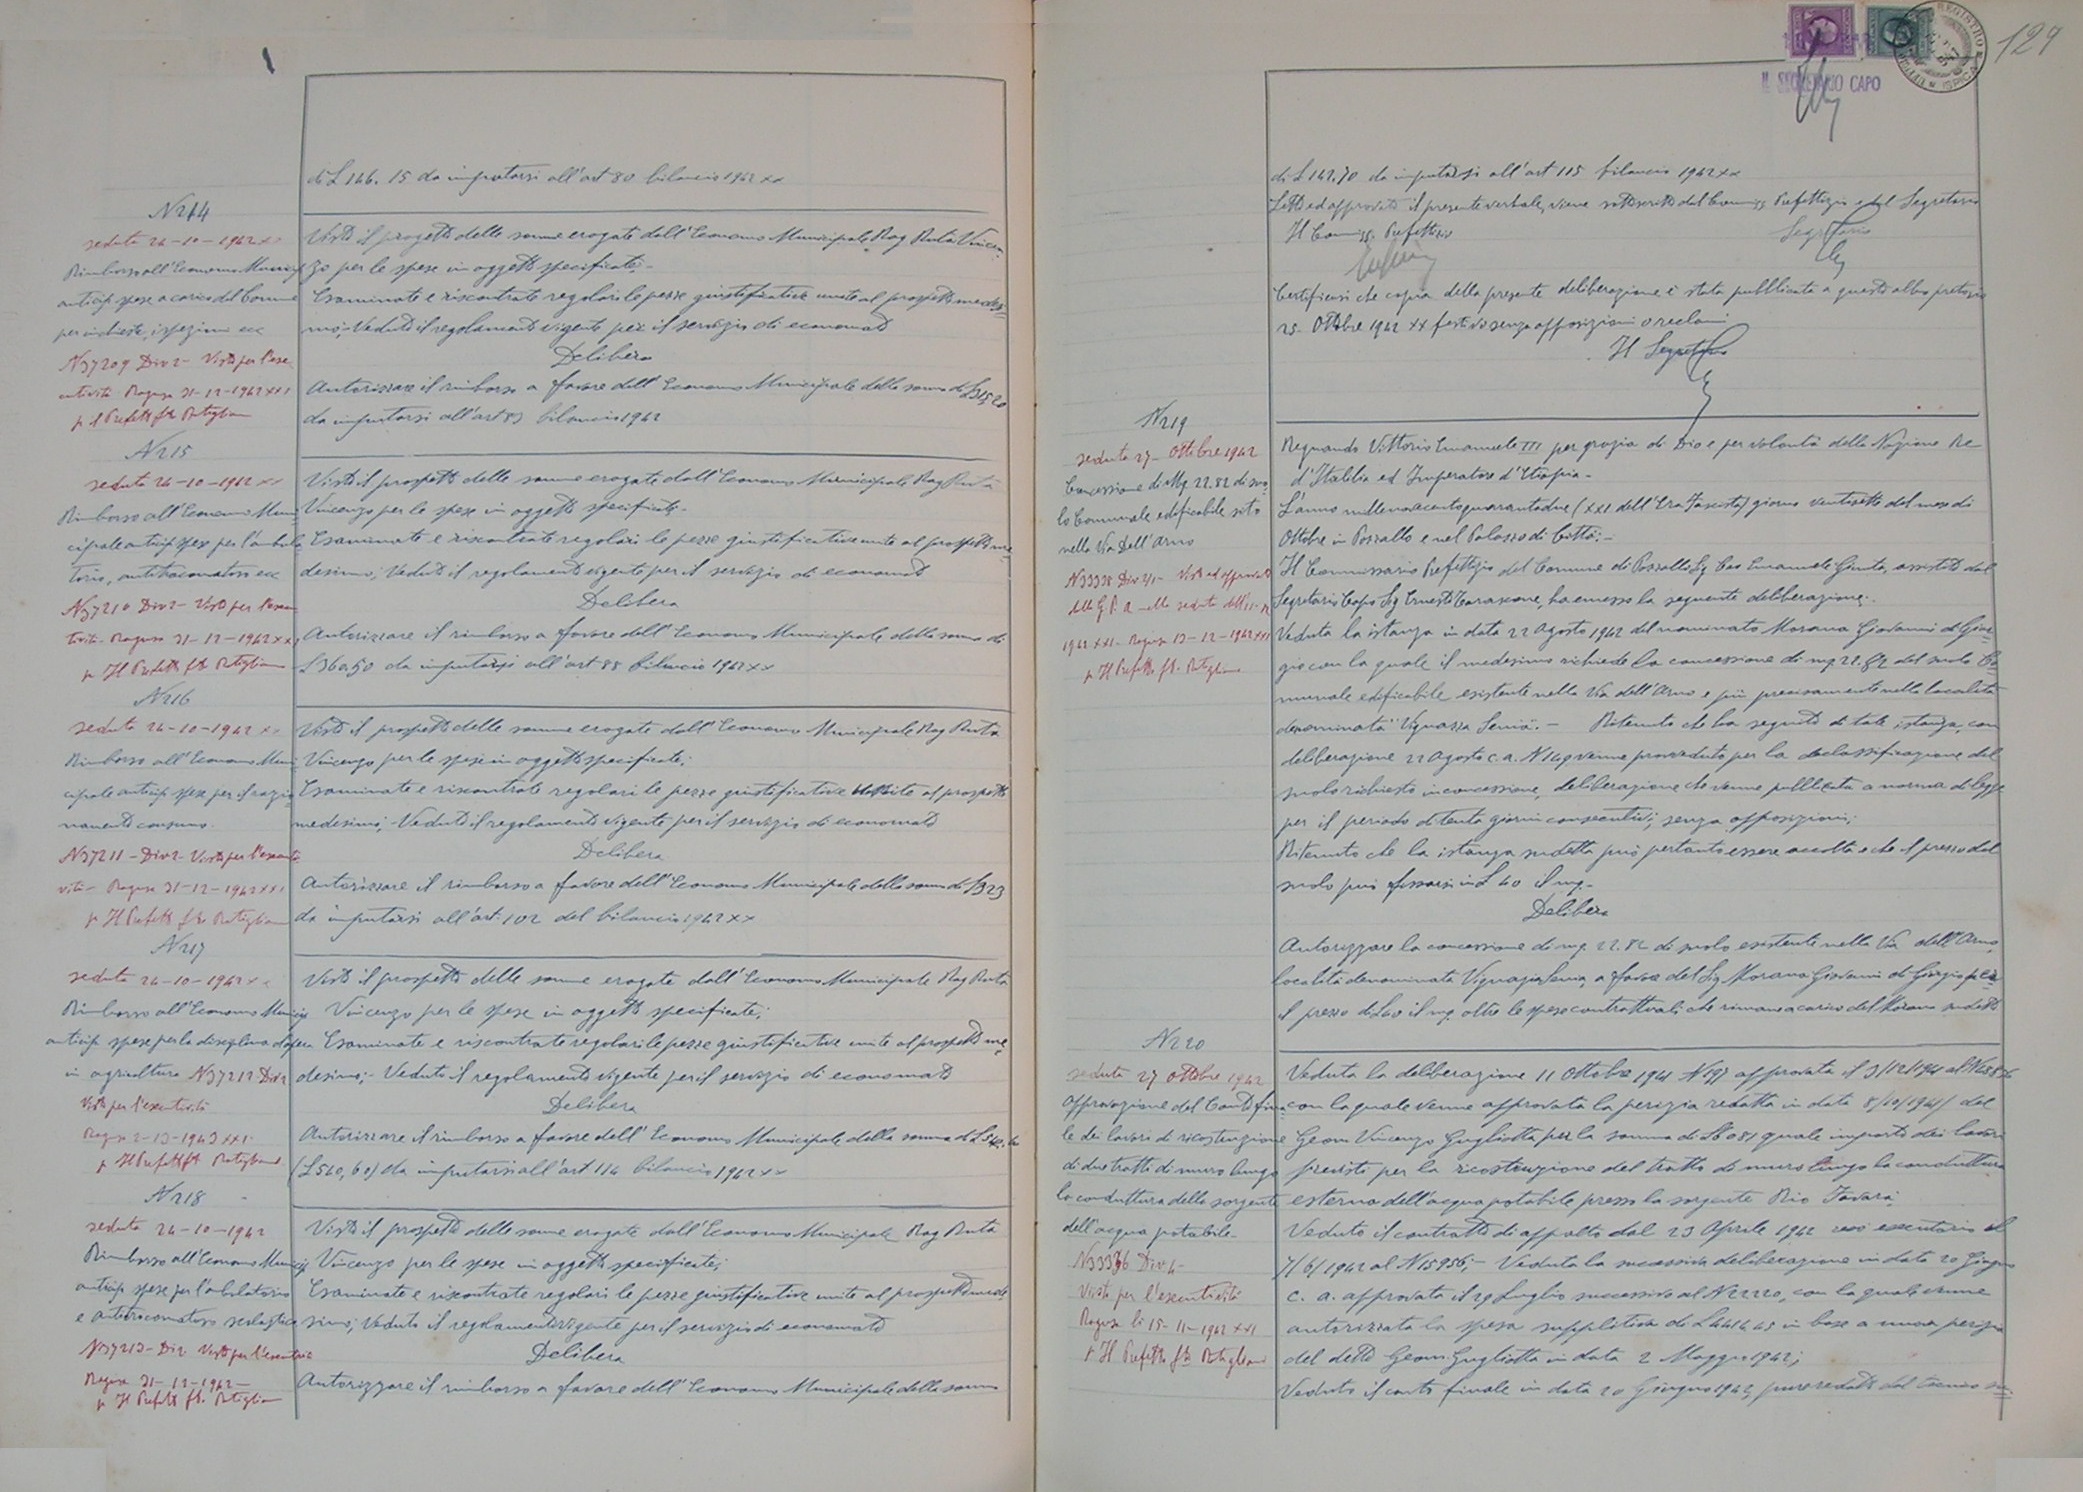 di L 146.15 da imputarsi all'art 80 bilancio 1942 XX
N 214
seduta 24-10-1942 XX
Rimborso all'Economo Municip
anticip spese a carico del Comune
per inchieste, ispezioni ecc
N 37209 Div 2- Visto per l'ese
cutività Ragusa 31-12-1942 XXI
p il Prefetto fto
Visto il progetto delle somme erogate dall'Economo Municipale Rag Ruta Vincen
zo per le spese in oggetto specificate;-
Esaminate e riscontrate regolari le pezze giustificative unite al prospetto mede
simo; Veduto il regolamento vigente per il servizio di economato
Delibera
Autorizzare il rimborso a favore dell'Economo Municipale della somma di L 315,20
da imputarsi all'art 83 bilancio 1942
N 215
seduta 24-10-1942 XX
Rimborso all'Economo Muni
cipale anticip spese per l'ambula
torio, antitracomatoso ecc
N 37210 Div 2- Visto per l'esecu
tività- Ragusa 31-12-1942 XXI
p Il Prefetto fto
Visto il prospetto delle somme erogate dall'Economo Municipale Rag Ruta
Vincenzo per le spese in oggetto specificate.-
Esaminate e riscontrate regolari le pezze giustificative unite al prospetto me
desimo; Veduto il regolamento vigente per il servizio di economato
Delibera
Autorizzare il rimborso a favore dell'Economo Municipale della somma di
L 360,50 da imputarsi all'art 88 bilancio 1942 XX
N 216
seduta 24-10-1942 XX
Rimborso all'Economo Muni
cipale anticip spese per il razio
namento consumo.
N 37211-Div 2- Visto per l'esecuti
vità- Ragusa 31-12-1942 XXI
p Il Prefetto fto
Visto il prospetto delle somme erogate dall'Economo Municipale Rag Ruta
Vincenzo per le spese in oggetto specificate;
Esaminate e riscontrate regolari le pezze giustificative unite al prospetto
medesimo;- Veduto il regolamento vigente per il servizio di economato
Delibera
Autorizzare il rimborso a favore dell'Economo Municipale della somma di L 323
da imputarsi all'art. 102 del bilancio 1942 XX
N 217
seduta 24-10-1942 XX
Rimborso all'Economo Municip
anticip spese per la disciplina d'opera
in agricoltura N 37212 Div 2
Visto per l'esecutività
Ragusa
p Il Prefetto fto
Visto il prospetto delle somme erogate dall'Economo Municipale Rag Ruta
Vincenzo per le spese in oggetto specificate;
Esaminate e riscontrate regolari le pezze giustificative unite al prospetto me
desimo;- Veduto il regolamento vigente per il servizio di economato
Delibera
Autorizzare il rimborso a favore dell'Economo Municipale della somma di L 540,60
(L 540,60) da imputarsi all'art 114 bilancio 1942 XX
N 218
seduta 24-10-1942
Rimborso all'Economo Municip
anticip spese per l'ambulatorio
e antitracomatoso scolastico
N 37213-Div 2 Visto per l'esecutività
Ragusa 31-12-1942-
p Il Prefetto fto
Visto il prospetto delle somme erogate dall'Economo Municipale Rag Ruta
Vincenzo per le spese in oggetto specificate;
Esaminate e riscontrate regolari le pezze giustificative unite al prospetto mede
simo; Veduto il regolamento vigente per il servizio di economato
Delibera
Autorizzare il rimborso a favore dell'Economo Municipale della somma
129
IL SEGRETARIO CAPO
di L 142,70 da imputarsi all'art 115 bilancio 1942 XX
Letto ed approvato il presente verbale, viene sottoscritto dal Commiss Prefettizio e dal Segretario
Il Commiss. Prefettizio
Segretario
Certificasi che copia della presente deliberazione è stata pubblicata a questo albo pretorio
25- Ottobre 1942 XX festivo senza opposizioni o reclami
Il Segretario
N 219
seduta 27- Ottobre 1942
Concessione di Mq 22.82 di suo
lo Comunale edificabile sito
nella Via Dell'Arno
N 33338 Div 2/1- Visto ed approvato
dalla G.P.A. nella seduta dell'11-12
1942 XXI- Ragusa 13-12-1942 XXI
p Il Prefetto fto.
Regnando Vittorio Emanuele III per grazia di Dio e per volontà della Nazione Re
d'Italia ed Imperatore d'Etiopia-
L'anno millenovecentoquarantadue (XXI dell'Era Fascista) giorno ventisette del mese di
Ottobre in Pozzallo e nel Palazzo di Città;-
Il Commissario Prefettizio del Comune di Pozzallo Sig Cav Emanuele Giunta, assistito dal
Segretario Capo Sig Ernesto Carascone, ha emesso la seguente deliberazione:-
Veduta la istanza in data 22 Agosto 1942 del nominato Morana Giovanni di Gior
gio con la quale il medesimo richiede la concessione di mq 22.82 del suolo Co
munale edificabile esistente nella Via dell'Arno e più precisamente nella località
denominata "Vignazza Senia".- Ritenuto che ha seguito di tale istanza, con
deliberazione 22 Agosto c.a. N 149 venne provveduto per la declassificazione del
suolo richiesto in concessione, deliberazione che venne pubblicata a norma di legge
per il periodo di trenta giorni consecutivi, senza opposizioni;
Ritenuto che la istanza sudetta può pertanto essere accolta e che il prezzo del
suolo può fissarsi in L 40 il mq-
Delibera
Autorizzare la concessione di mq. 22.82 di suolo esistente nella Via dell'Arno,
località denominata Vignazza Senia, a favore del Sig Morana Giovanni di Giorgio per
il prezzo di L 40 il mq. oltre le spese contrattuali che rimane a carico del Morana sudetto
N 220
seduta 27 Ottobre 1942
Approvazione del Conto fina
le dei lavori di ricostruzione
di due tratti di muro lungo
la conduttura della sorgente
dell'acqua potabile-
N 33376 Div 4-
Visto per l'esecutività
Ragusa li 15-11-1942 XXI
p Il Prefetto fto
Veduta la deliberazione 11 Ottobre 1941 N 197 approvata il 3/12/1941 al
con la quale venne approvata la perizia redatta in data 8/10/1941 dal
Geom Vincenzo Gugliotta per la somma di L 6081 quale importo dei lavori
previsti per la ricostruzione del tratto di muro lungo la conduttura
esterna dell'acqua potabile presso la sorgente Rio Favara;
Veduto il contratto di appalto del 23 Aprile 1942 reso esecutorio il
7/6/1942 al N 15956;- Veduta la successiva deliberazione in data 20 Giugno
c. a. approvata il 29 Luglio successivo al N 22220, con la quale venne
autorizzata la spesa suppletiva di L 4414.45 in base a nuova perizia
del detto Geom. Gugliotta in data 2 Maggio 1942;
Veduto il conto finale in data 20 Giugno 1942, pure redatto dal tecnico su